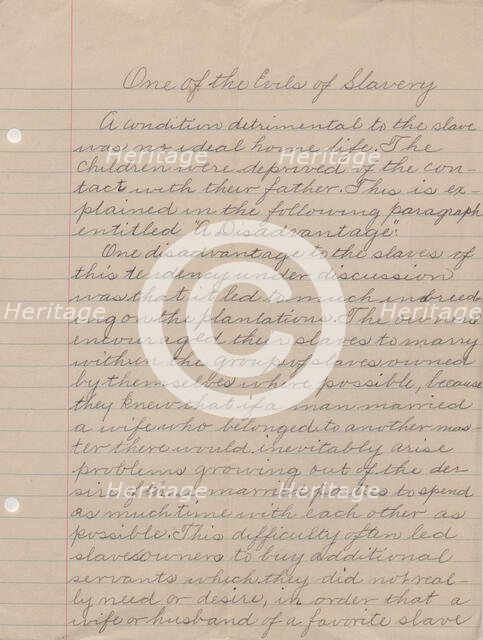 One of the Evils of Slavery
A condition detrimental to the slave
was no ideal home life. The
children were deprived of the con-
tact with their father. This is ex-
plained in the following paragraph
entitled "A Disadvantage".
One disadvantage to the slaves of
this tendency under discussion
was that it led to much inbreed
ing on the plantations. The owners
encouraged their slaves to marry
within the groups of slaves owned
by themselves where possible, because
they knew that if a man married
a wife who belonged to another mas-
ter there would inevitably arise
problems growing out of the de-
sire of the married parties to spend
as much time with each other as
possible. This difficulty often led
slaveowners to buy additional
servants which they did not real-
ly need or desire, in order that a
wife or husband of a favorite slave
Heritage
Heritage
Heritage
Heritage
Heritage
Heritage
Heritage
Heritage
C